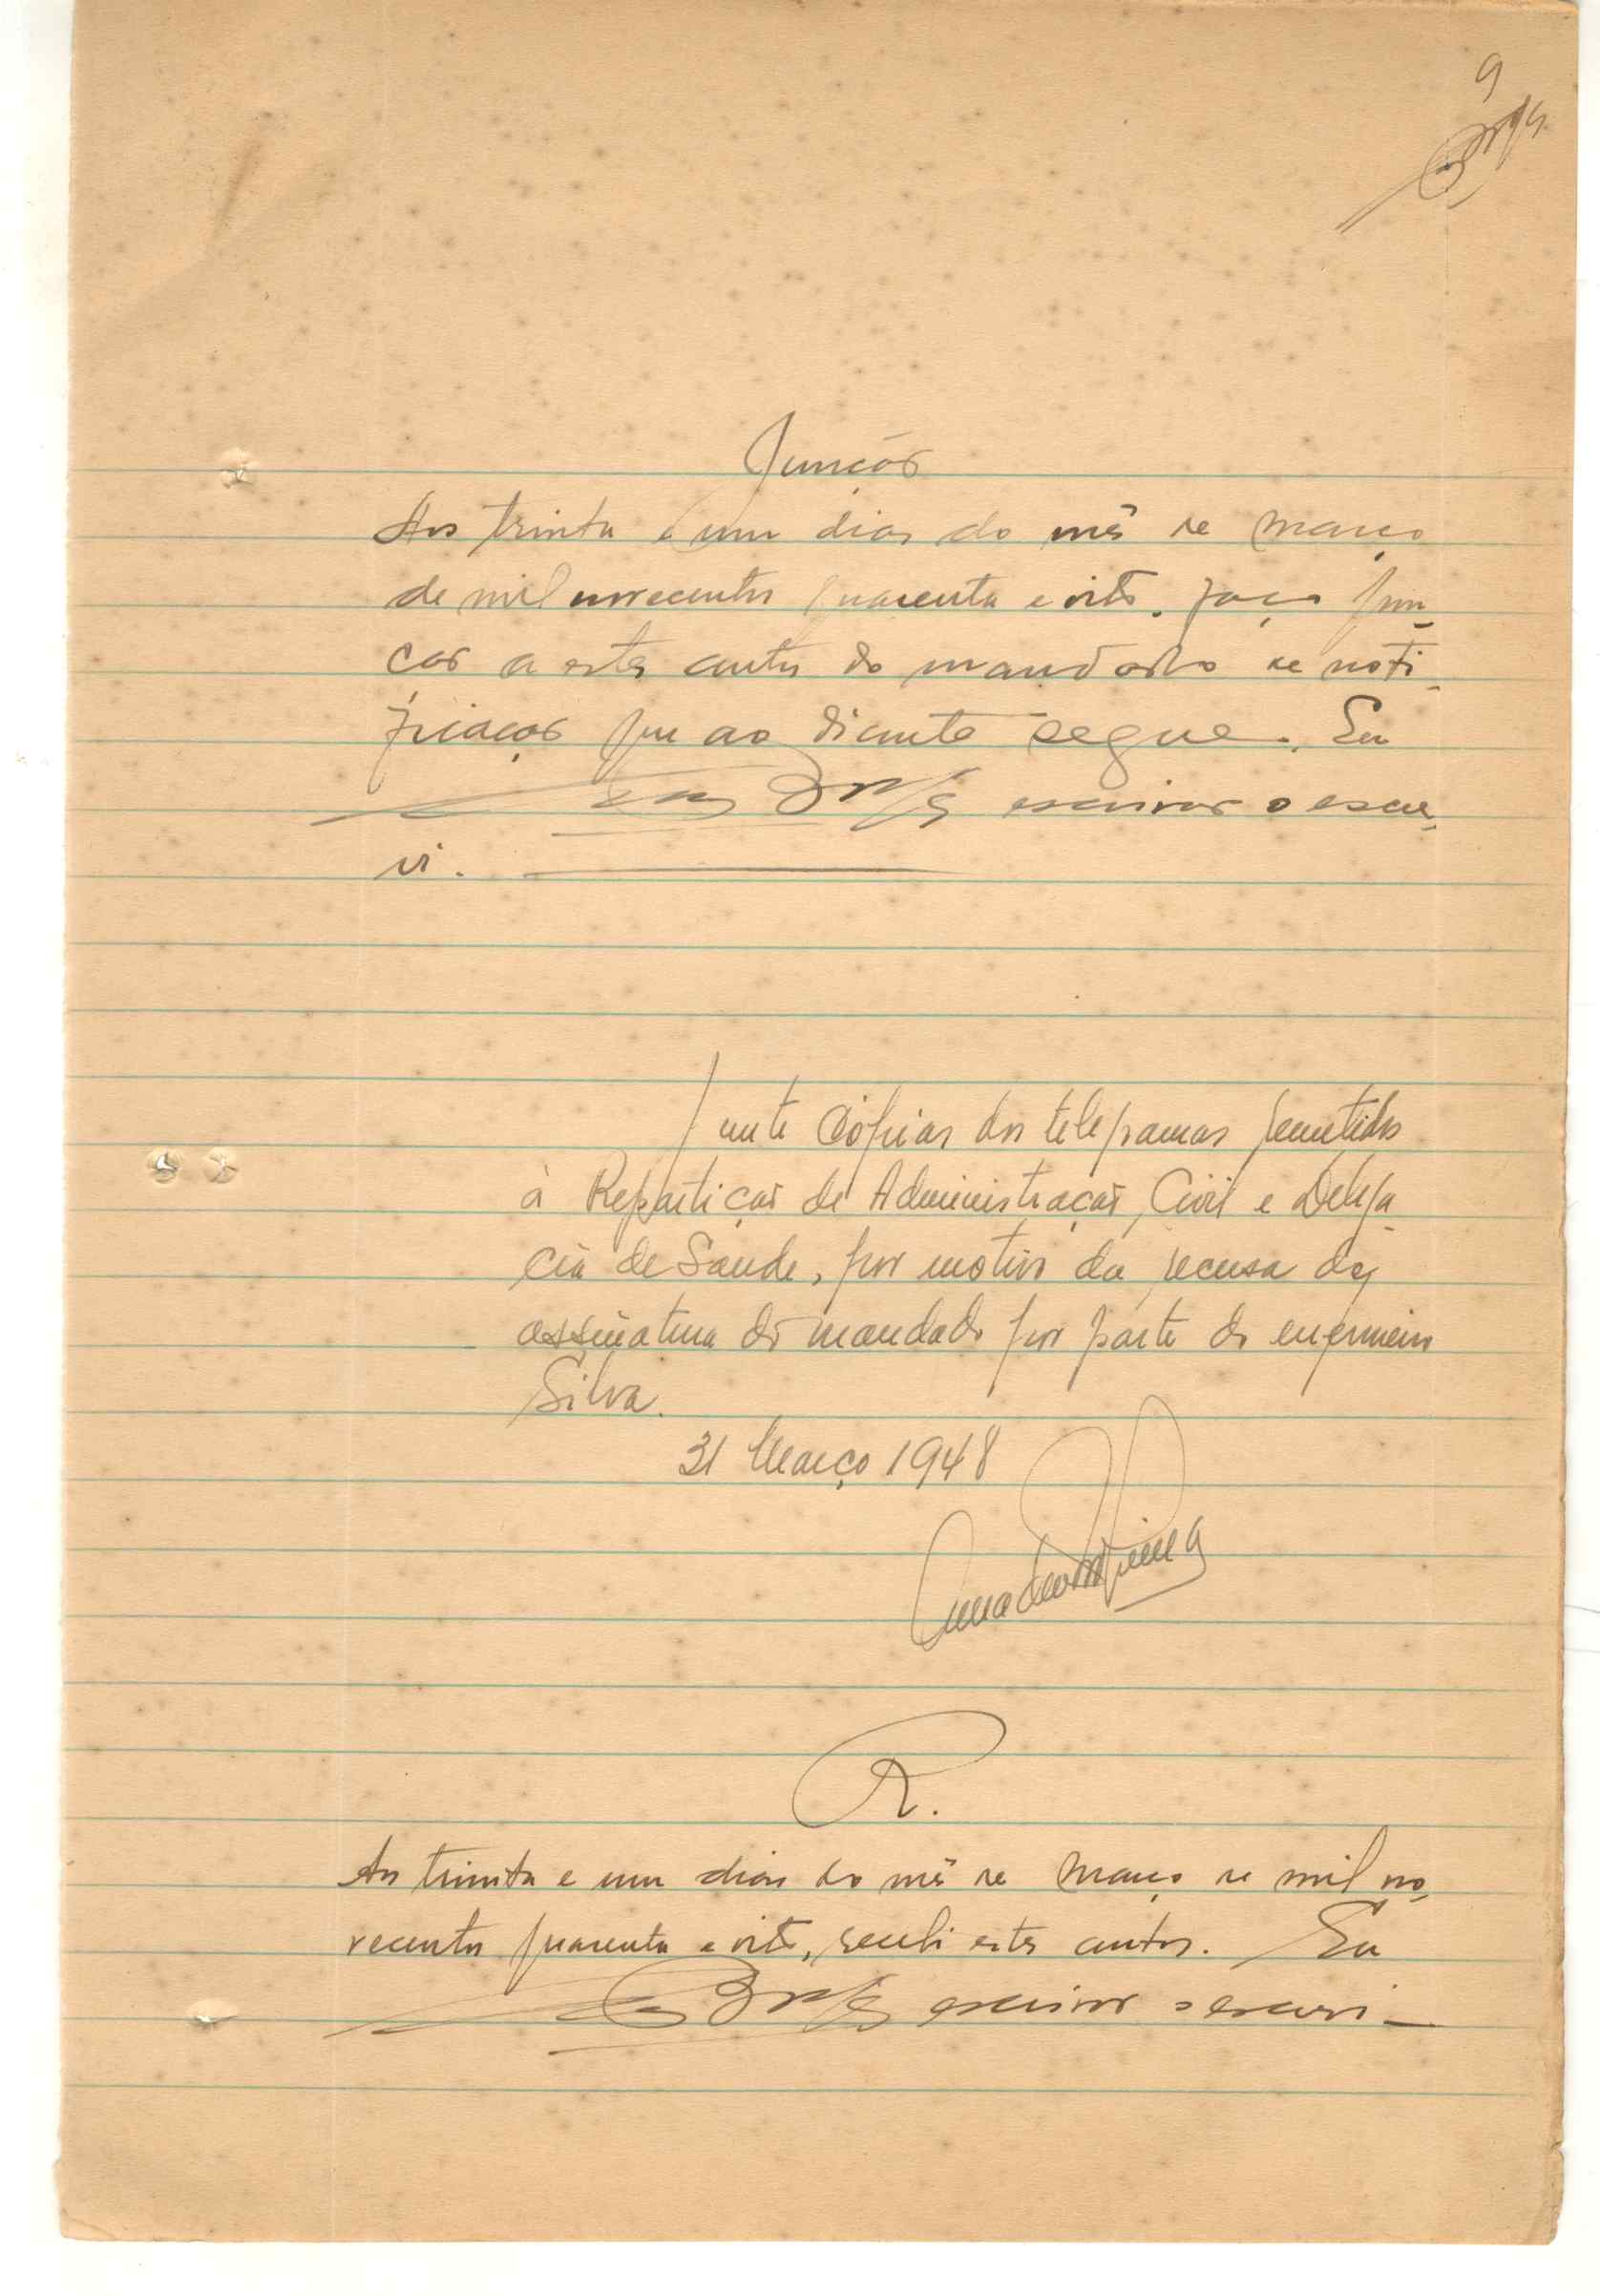 9
Junção
Aos trinta e um dias do mês de Março
de mil novecentos quarenta e oito. faço jun-
ção a estes autos do mandado de noti-
ficação que ao diante segue. Eu
escrivão o escre-
vi.
Junte cópias dos telegramas remetidos
à Repartição de Administração Civil e Delega-
cia de Saúde, por motivo da recusa da
assinatura do mandado por parte do enfermeiro
Silva.
31 Março 1948
R.
Aos trinta e um dias do mês de Março de mil no-
vecentos quarenta e oito, recebi estes autos. Eu
escrivão o escrevi